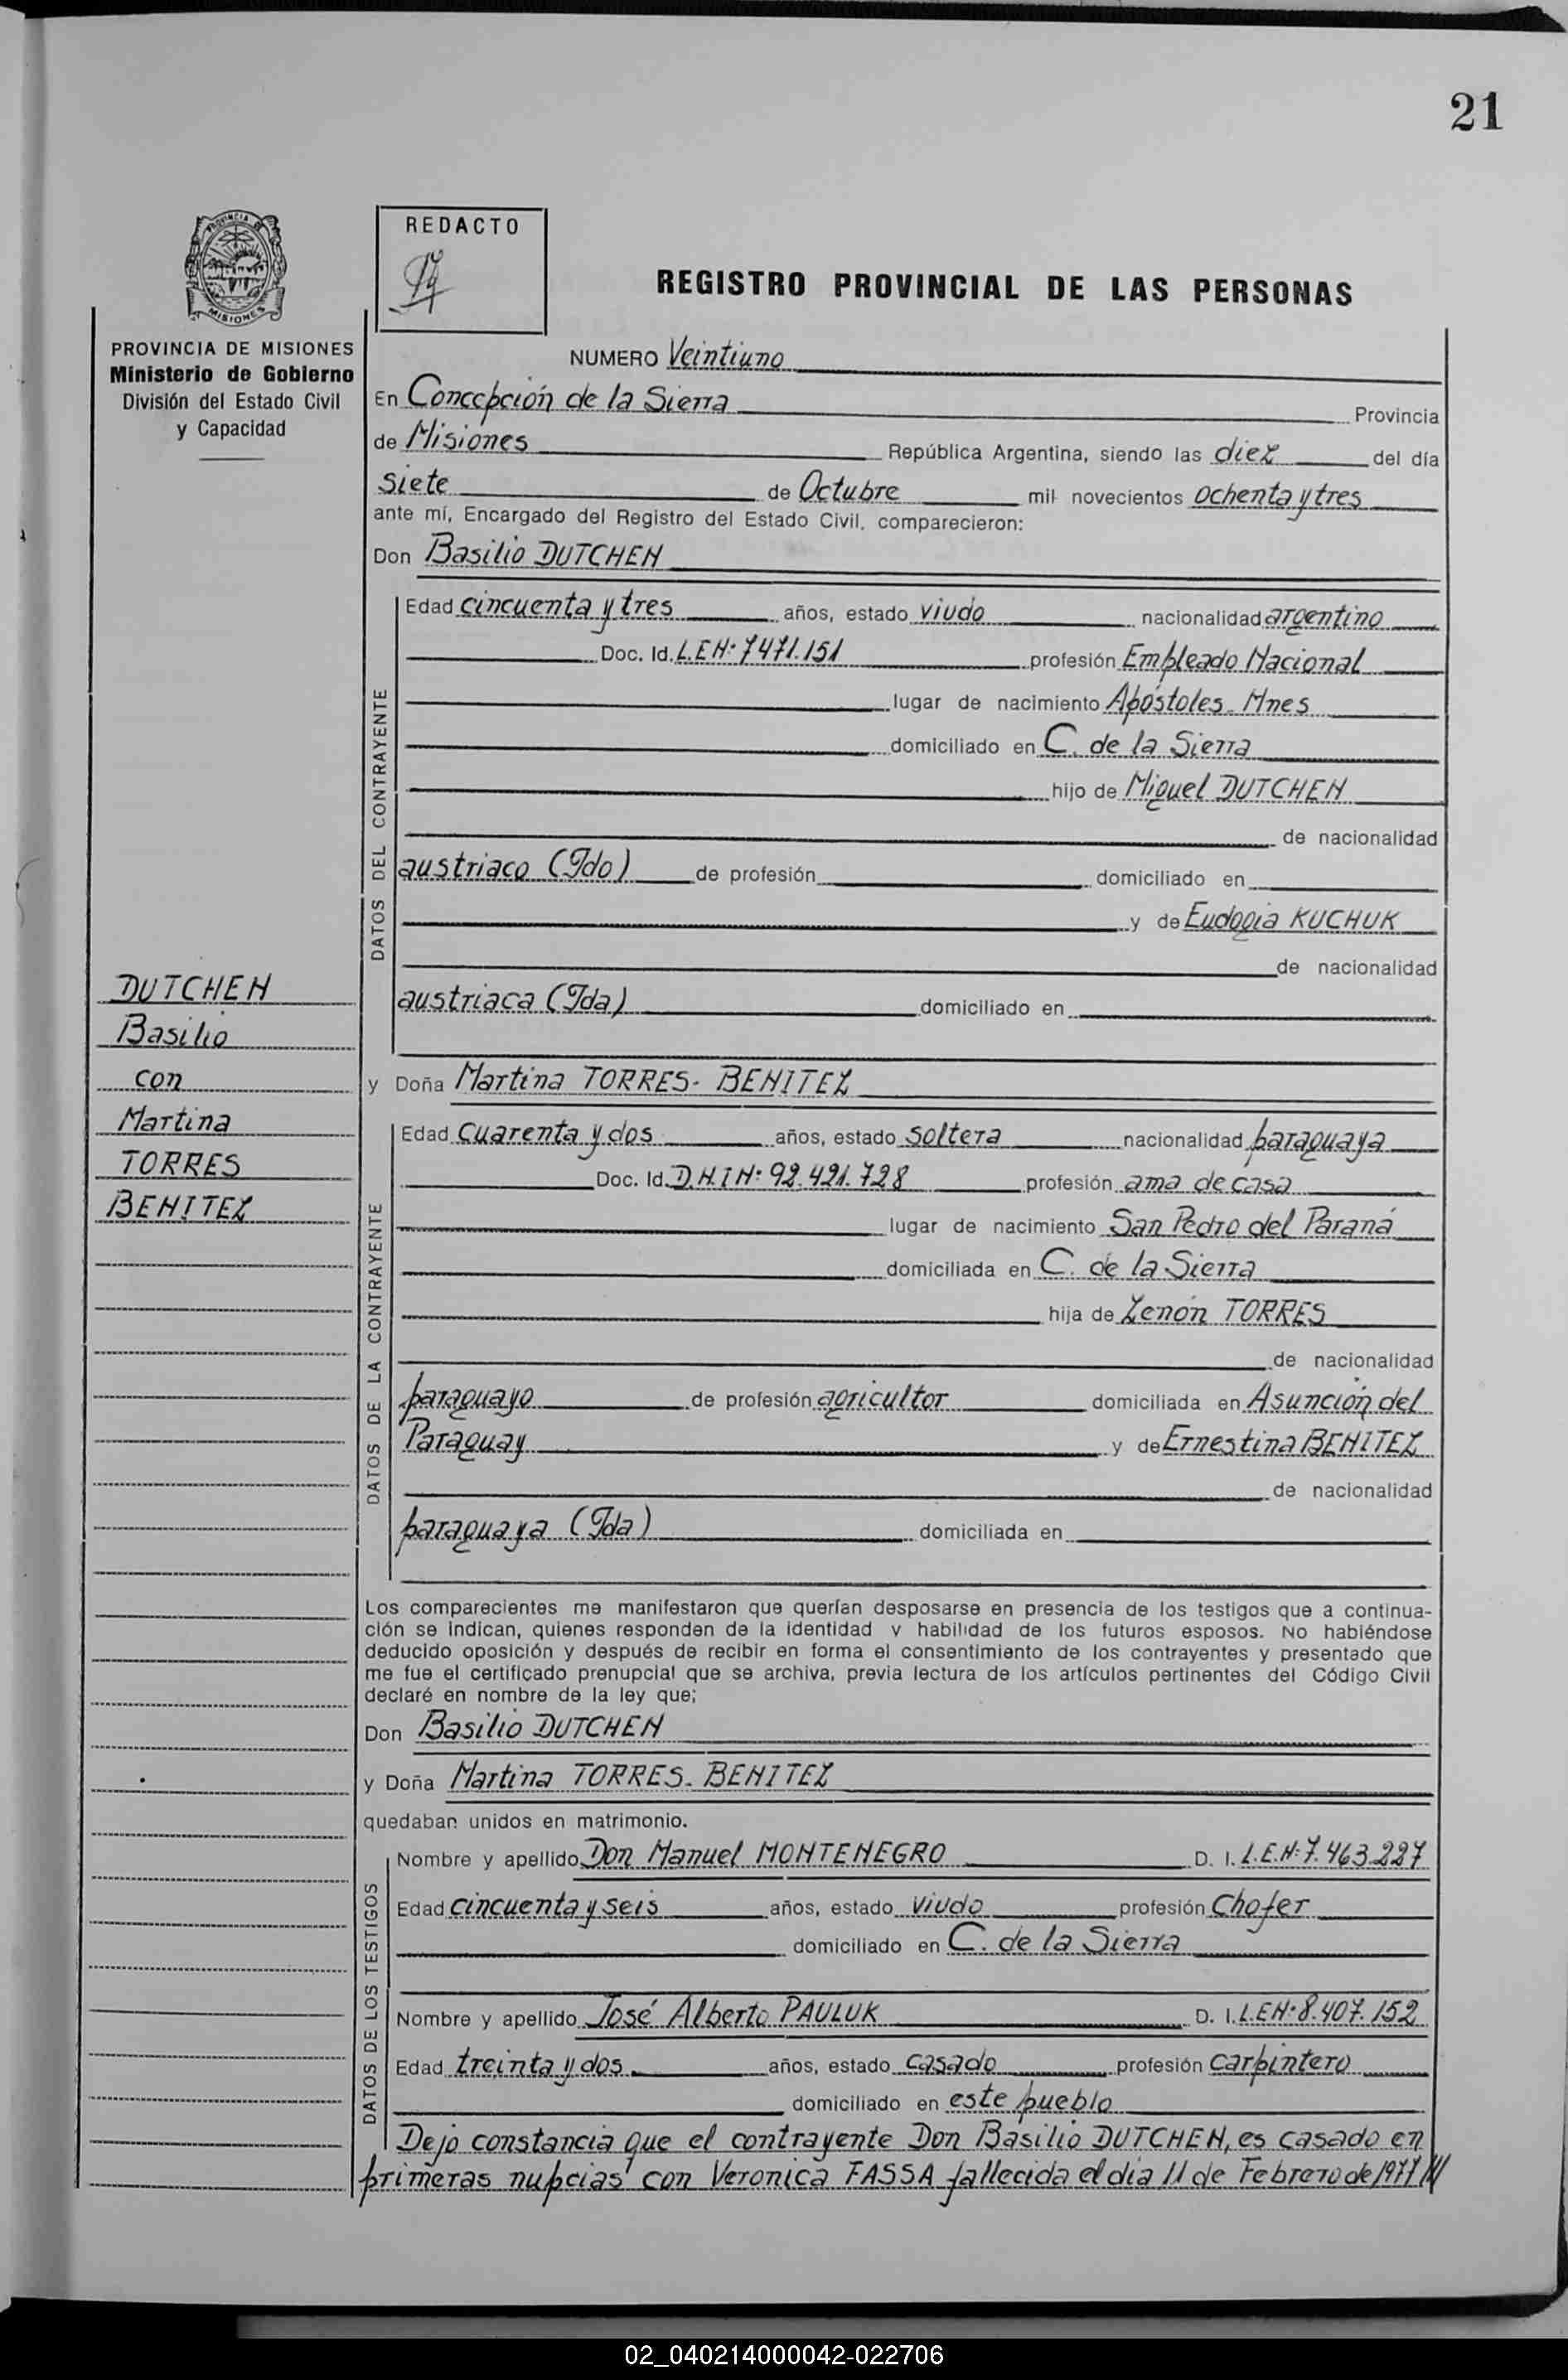 21
PROVINCIA DE
MISIONES
REDACTO
REGISTRO PROVINCIAL DE LAS PERSONAS
PROVINCIA DE MISIONES
Ministerio de Gobierno
División del Estado Civil
y Capacidad
NUMERO Veintiuno
En Concepción de la Sierra Provincia
de Misiones República Argentina, siendo las diez del día
siete de Octubre mil novecientos ochenta y tres
ante mí, Encargado del Registro del Estado Civil, comparecieron:
Don Basilio DUTCHEN
DATOS DEL CONTRAYENTE
Edad cincuenta y tres años, estado viudo nacionalidad argentino
Doc. Id. L.E.Nº 7471.151 profesión Empleado Nacional
lugar de nacimiento Apóstoles- Mnes
domiciliado en C. de la Sierra
hijo de Miguel DUTCHEN
de nacionalidad
austriaco (Fdo) de profesión domiciliado en
y de Eudogia KUCHUK
de nacionalidad
austriaca (Fda) domiciliado en
DUTCHEN
Basilio
con
Martina
TORRES
BENITEZ
y Doña Martina TORRES- BENITEZ
DATOS DE LA CONTRAYENTE
Edad cuarenta y dos años, estado soltera nacionalidad paraguaya
Doc. Id. D.N.I Nº 92.421.728 profesión ama de casa
lugar de nacimiento San Pedro del Paraná
domiciliada en C. de la Sierra
hija de Zenón TORRES
de nacionalidad
paraguayo de profesión agricultor domiciliada en Asunción del
Paraguay y de Ernestina BENITEZ
de nacionalidad
paraguaya (Fda) domiciliada en
Los comparecientes me manifestaron que querían desposarse en presencia de los testigos que a continua-
ción se indican, quienes responden de la identidad y habilidad de los futuros esposos. No habiéndose
deducido oposición y después de recibir en forma el consentimiento de los contrayentes y presentado que
me fue el certificado prenupcial que se archiva, previa lectura de los artículos pertinentes del Código Civil
declaré en nombre de la ley que;
Don Basilio DUTCHEN
y Doña Martina TORRES- BENITEZ
quedaban unidos en matrimonio.
DATOS DE LOS TESTIGOS
Nombre y apellido Don Manuel MONTENEGRO D. I. L.E.Nº 7.463.227
Edad cincuenta y seis años, estado viudo profesión Chofer
domiciliado en C. de la Sierra
Nombre y apellido José Alberto PAULUK D. I. L.E.Nº 8.407.152
Edad treinta y dos años, estado casado profesión carpintero
domiciliado en este pueblo
Dejo constancia que el contrayente Don Basilio DUTCHEN, es casado en
primeras nupcias con Veronica FASSA fallecida el dia 11 de Febrero de 1977
02_040214000042-022706